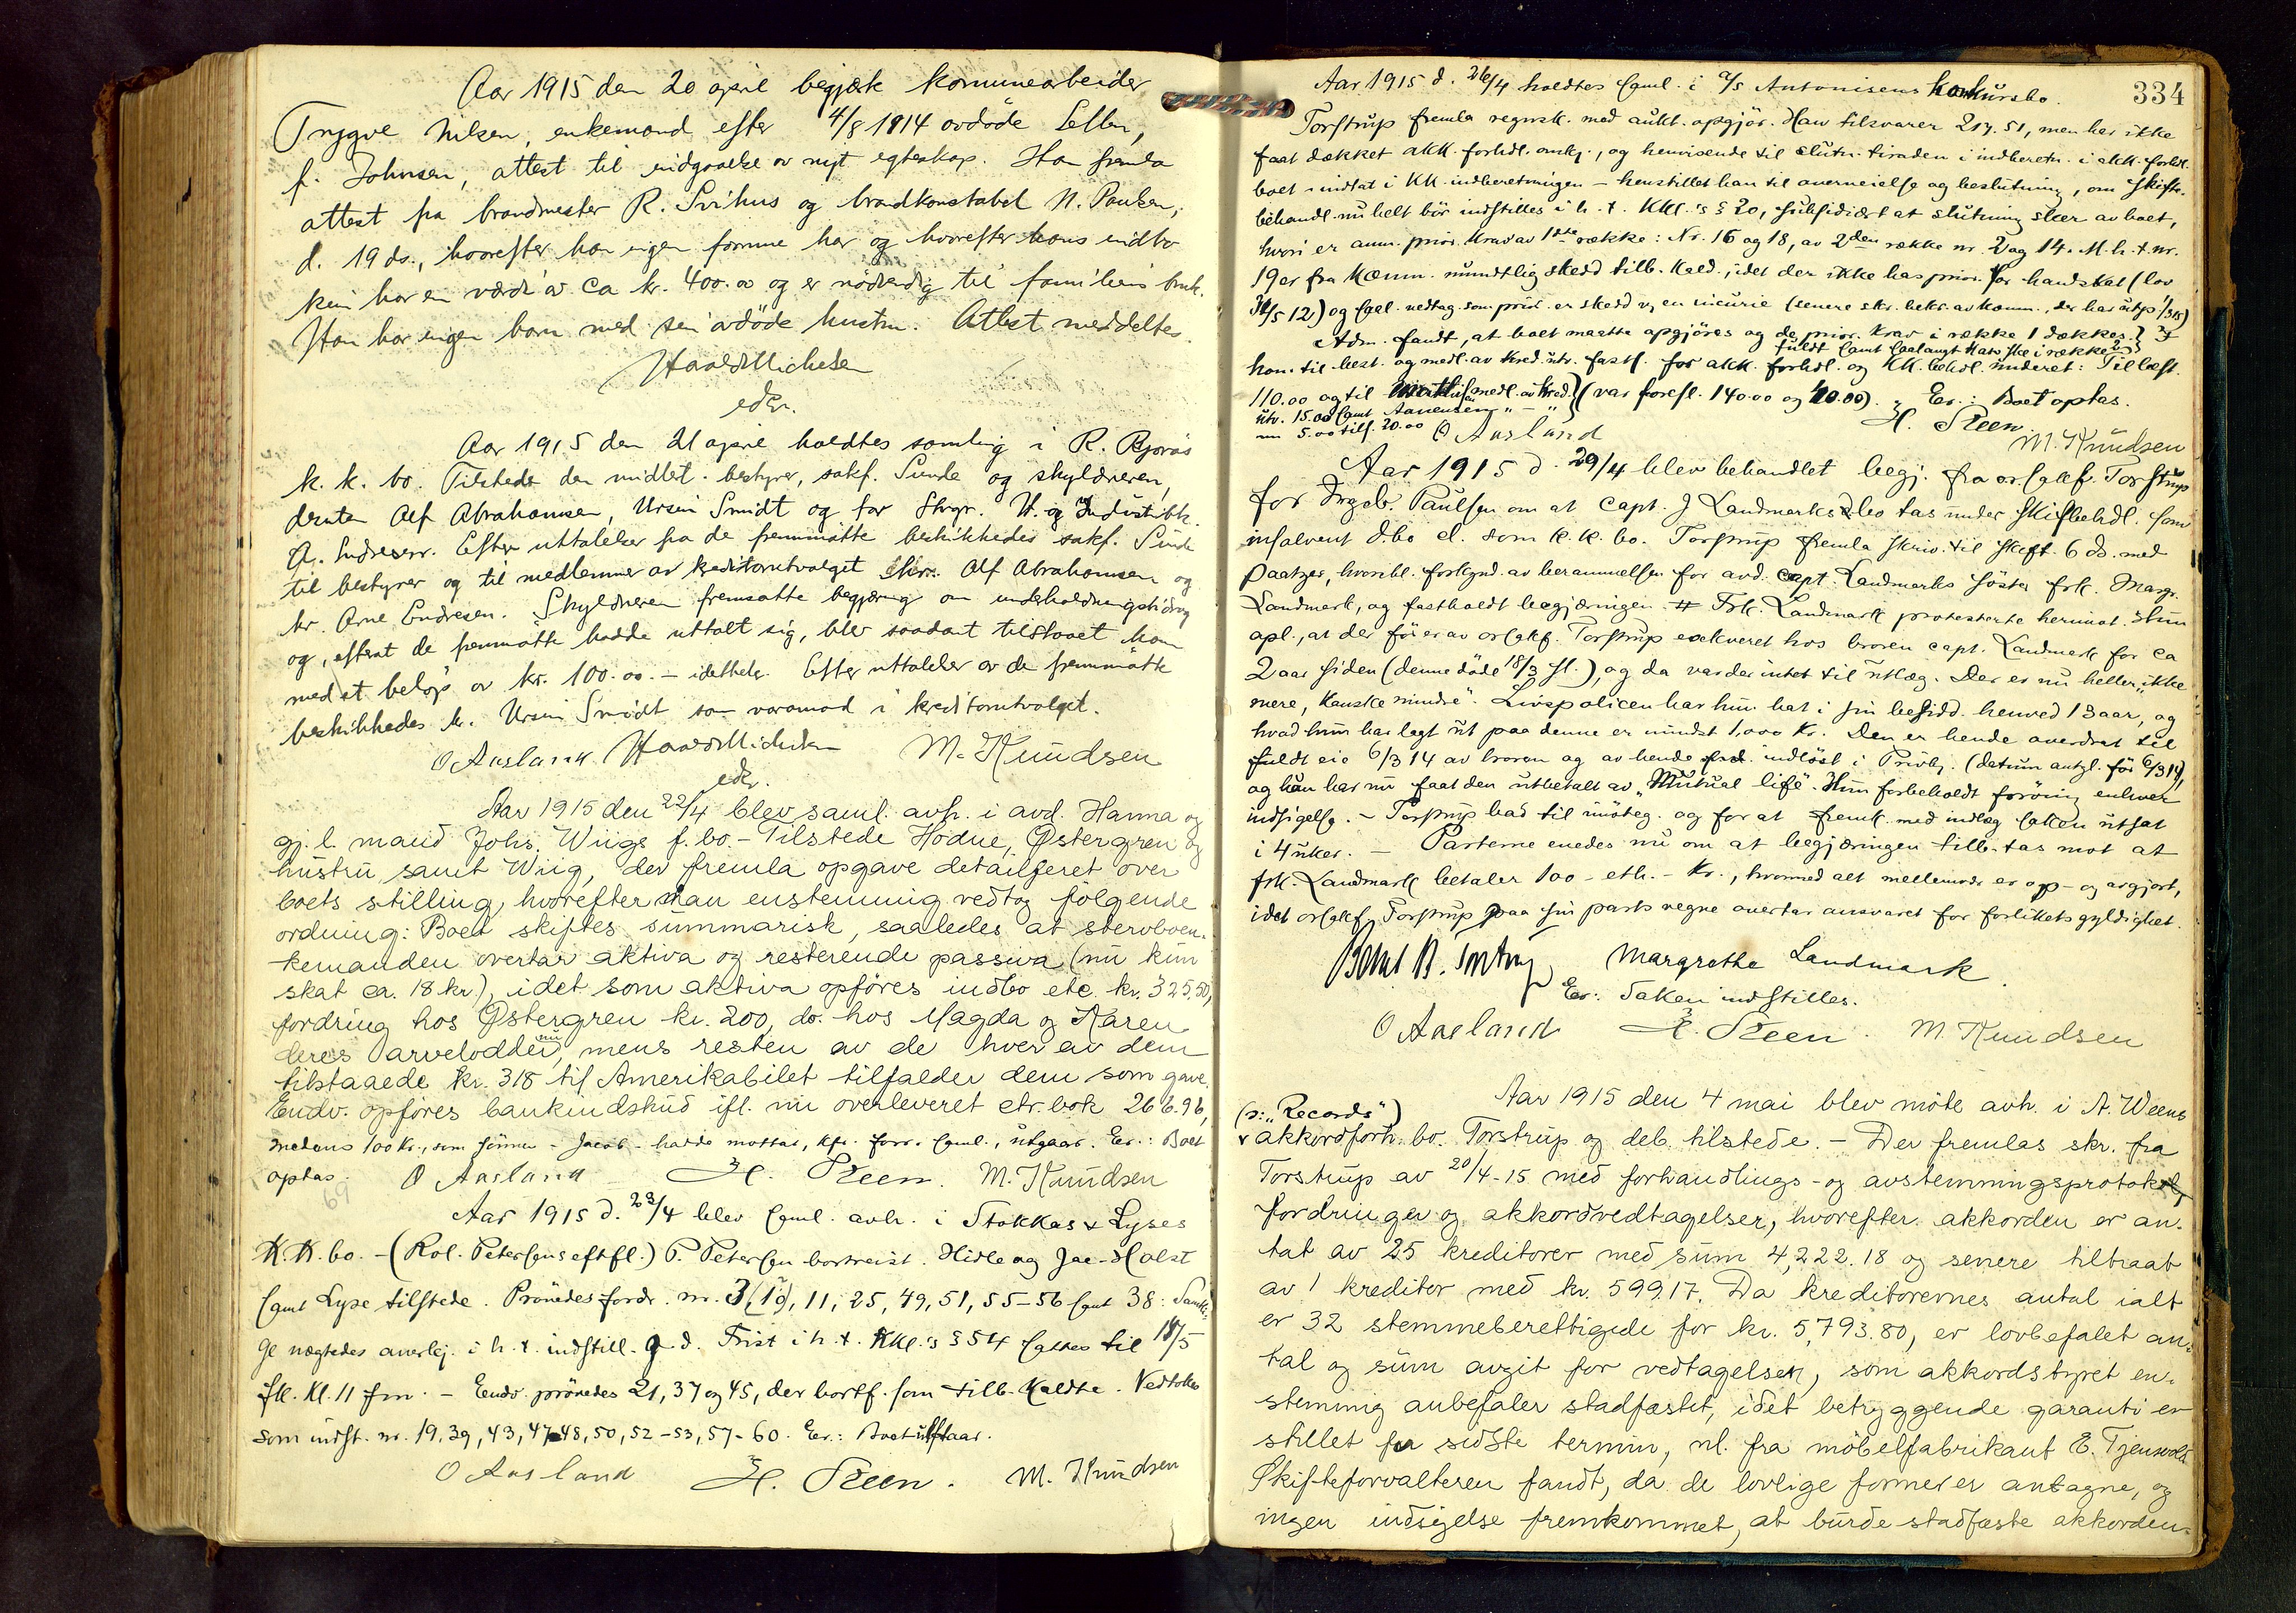 Aar 1915 den 20 april begjærte kommunearbeider
Trygve Nilsen, enkemand efter 4/8 1914 avdøde
f. Johnsen, attest til indgaaelse av nyt egteskap. Han fremla
attest fra brandmester R. Svihus og brandkonstabel N. Paulsen,
d. 19 ds., hvorefter han ingen formue har og hvorefter hans indbo
kun har en værdi av ca kr. 400.00 og er nødvendig til familiens bruk.
Han har ingen barn med sin avdøde hustru. Attest meddeltes.
Harald Michelsen
edsv.
Aar 1915 den 21 april holdtes samling i R.
k. k. bo. Tilstede den midlert. bestyrer, sakf. Sunde og skyldneren,
desuten Alf Abrahamsen, Ursin Smidt og for Stvgr. H. og Industribk.
A. Endresen. Efter uttalelser fra de fremmøtte beskikkedes sakf. Sunde
til bestyrer og til medlemmer av kreditorutvalget hr. Alf Abrahamsen og
hr. Arne Endresen. Skyldneren fremsatte begjæring om underholdningsbidrag
og, efterat de fremmøtte hadde uttalt sig, blev saadant tilstaaet ham
med et beløp av kr. 100.00. – idethele. Efter uttalelse av de fremmøtte
beskikkedes hr. Ursin Smidt som varamand i kreditorutvalget.
O Aasland. Harald Michelsen M. Knudsen
edsv.
Aar 1915 den 22/4 blev saml. avh. i avd. Hanna og
gj. l. mand Johs. Wiigs f. bo. – Tilstede Hodne, Østergren og
hustru samt Wiig, der fremla opgave detaljeret over
boets stilling, hvorefter man enstemmig vedtog følgende
ordning: Boet skiftes summarisk, saaledes at stervboen-
kemanden overtar aktiva og resterende passiva (nu kun
skat ca. 18 kr.), idet som aktiva opføres indbo etc. kr. 325.50,
fordring hos Østergren kr. 200, do. hos Magda og Karen
deres arvelodder, mens resten av de hver av dem
tilstaaede kr. 318 til Amerikabilet tilfalder dem som gave.
Endv. opføres bankindskud ifl. nu overleveret ktr. bok 266.96,
medens 100 kr., som sønnen – Jacob – hadde mottat, kfr. forr. saml., utgaar. Eer.: Boet
optas. O Aasland H. Steen. M. Knudsen
Aar 1915 d. 23/4 blev saml. avh. i Stokkas & Lyses
K.K. bo. – (Rol. Petersens eftfl.) P. Petersen bortreist. Hidle og Jac. Holst
samt Lyse tilstede. Prøvedes fordr. nr. 3, (19), 11, 25, 49, 51, 55–56 samt 38.
nægtedes anerkj. i h. t. indstill. g. d. Frist i h. t. KKl.'s § 54 sattes til 18/5
fl. Kl. 11 fm. – Endv. prøvedes 21, 37 og 45, der bortf. som tilb. kaldte. Vedtokes
som indst. nr. 19, 39, 43, 47–48, 50, 52–53, 57–60. Eer.: Boet utstaar.
O Aasland H. Steen. M. Knudsen
334
Aar 1915 d. 26/4 holdtes saml. i A/S Antonisens konkursbo.
Torstrup fremla regnsk. med aukt. opgjør. Han tilsvarer 217.51, men har ikke
faat dækket akk. forhdl. omk., og henvisende til slutn. tiraden i indberetn. i akk. forhdl.
boet – indtat i KK. indberetningen – henstillet han til overveielse og beslutning, om skifte-
behandl. nu helt bør indstilles i h. t. KKl.'s § 20, subsidiært at slutning sker av boet,
hvori er anm. prior. krav av 1ste række: Nr. 16 og 18, av 2den række nr. 2 og 14. M. h. t. nr.
19 er fra Kæmn. mundtlig skedd tilb. kald., idet der ikke has prior. for handskat (lov
og sml. vedtag. som prior. er skedd v. en incurie (senere skr. bekr. av kæmn.,
Adm. fandt, at boet maatte opgjøres og de prior. krav i række 1 dækkes
fuldt samt saalangt kan ske i række 2
hon. til best. og medl. av kred. utv. fasts. for akk. forhdl. og KK. behdl. underet: Til best.
110.00 og til medl. av kred. (var forefl. 140.00 og 40.00). Eer.: Boet optas.
utv. 15.00 samt Aanensen
nu 5.00 tils. 20.00 O Aasland H. Steen.
M. Knudsen
Aar 1915 d. 29/4 blev behandlet begj. fra or.sakf. Torstrup
for Ingeb. Paulsen om at capt. J Landmarks d.bo tas under skiftebehdl. som
insolvent d.bo el. som k.k. bo. Torstrup fremla skriv. til skift. 6 ds. med
paategn., hvoribl. forkynd. av berammelsen for avd. capt. Landmarks søster frk. Margr.
Landmark, og fastholdt begjæringen. Frk. Landmark protesterte herimot. Hun
opl., at der før er av orsakf. Torstrup exekveret hos broren capt. Landmark for ca
2 aar siden (denne døde 18/3 sl.), og da var der intet til utlæg. Der er nu heller „ikke
mere, kanske mindre". Livspolicen har hun hat i sin besidd. henved 13 aar, og
hvad hun har lagt ut paa denne er mindst 1,000 kr. Den er hende overdrat til
fuldt eie 6/3 14 av broren og av hende indløst i Privbk. (datum antgl. før 6/3 14),
og hun har nu faat den utbetalt av „Mutual life". Hun forbeholdt forøvrig enhver
indsigelse. – Torstrup bad til imøteg. og for at fremk. med indlæg saken utsat
i 4 uker. – Parterne enedes nu om at begjæringen tilb. tas mot at
frk. Landmark betaler 100 – eth. – kr., hvormed alt mellemvær er op- og avgjort,
idet orsakf. Torstrup paa sin parts vegne overtar ansvaret for forlikets gyldighet.
Margrethe Landmark
Eer.: Saken indstilles.
O Aasland H. Steen. M. Knudsen
Aar 1915 den 4 mai blev møte avh. i A. Weens
(ɔ: „Records")
akkordforh. bo. Torstrup og deb. tilstede. – Der fremlas skr. fra
Torstrup av 20/4-15 med forhandlings- og avstemningsprotokol,
fordringer og akkordvedtagelser, hvorefter akkorden er an-
tat av 25 kreditorer med sum 4,222.18 og senere tiltraat
av 1 kreditor med kr. 599.17. Da kreditorernes antal ialt
er 32 stemmeberettigede for kr. 5,793.80, er lovbefalet an-
tal og sum avgit for vedtagelsen, som akkordstyret en-
stemmig anbefaler stadfæstet, idet betryggende garanti er
stillet for sidste termin, nl. fra møbelfabrikant E. Tjensvold
Skifteforvalteren fandt, da de lovlige former er antagne, og
ingen indsigelse fremkommet, at burde stadfæste akkorden.